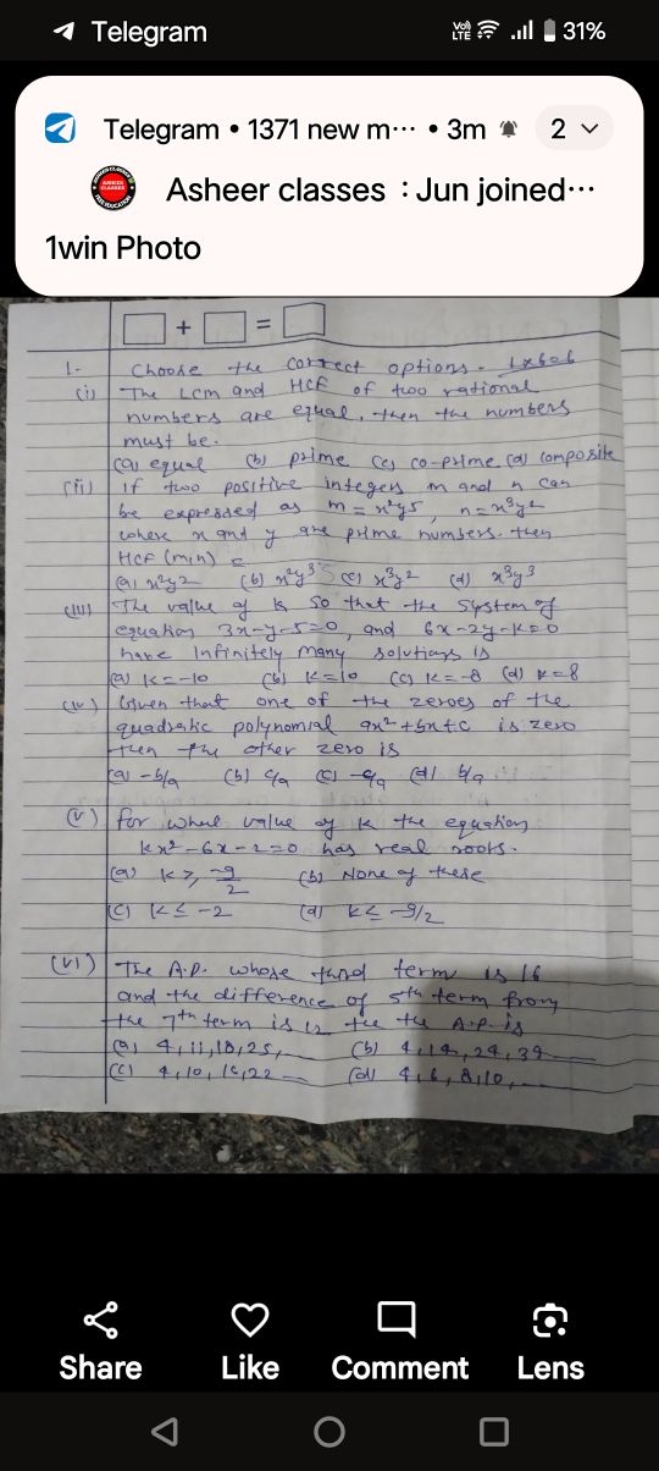 Telegram
Vo) LTE 31%
Telegram • 1371 new m··· • 3m 2
Asheer classes : Jun joined···
1win Photo
+ =
1. Choose the correct options. 1x6=6
(i) The Lcm and HCF of two rational
numbers are equal, then the numbers
must be.
(a) equal (b) prime (c) co-prime (d) composite
(ii) If two positive integers m and n can
be expressed as m = x²y5, n = x³y2
where x and y are prime numbers. then
HCF (m,n) =
(a) x²y2 (b) x²y³ (c) x³y² (d) x³y³
(iii) The value of k so that the system of
equation 3x-y-5=0, and 6x-2y-k=0
have Infinitely many solutions is
(a) k=-10 (b) k=10 (c) k=-8 (d) k=8
(iv) Given that one of the zeroes of the
quadratic polynomial ax²+bx+c is zero
then the other zero is
(a) -b/a (b) c/a (c) -c/a (d) b/a
(v) for what value of k the equation
kx²-6x-2=0 has real roots.
(a) k ≥ -9/2 (b) None of these
(c) k ≤ -2 (d) k ≤ -9/2
(vi) The A.P. whose third term is 16
and the difference of 5th term from
the 7th term is 12 the the A.P. is
(a) 4, 11, 18, 25, (b) 4, 14, 24, 34
(c) 4, 10, 16, 22 (d) 4, 6, 8, 10,
Share Like Comment Lens